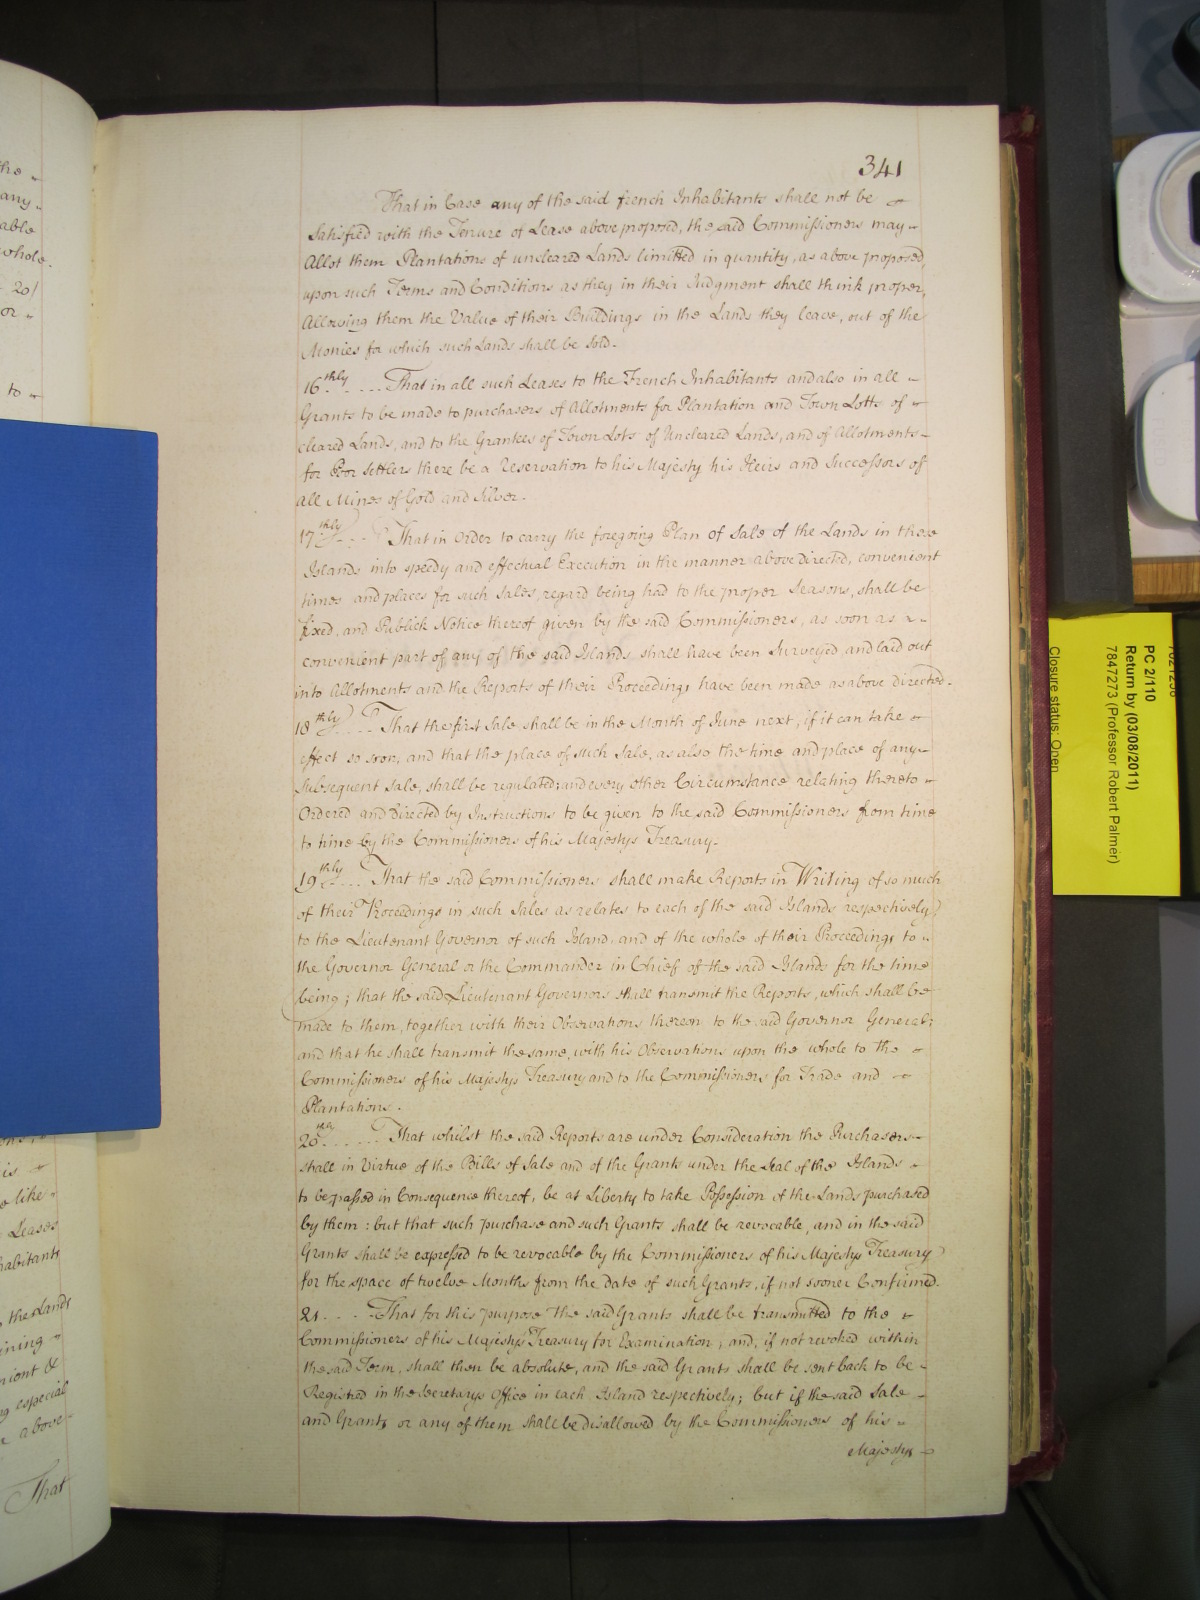 341
That in Case any of the said french Inhabitants shall not be
Satisfied with the Tenure of Lease above proposed, the said Commissioners may
Allot them Plantations of uncleared Lands limitted in quantity, as above proposed,
upon such Terms and Conditions as they in their Judgment shall think proper,
Allowing them the Value of their Buildings in the Lands they leave, out of the
Monies for which such Lands shall be Sold.
16thly .... That in all such Leases to the French Inhabitants and also in all
Grants to be made to purchasers of Allotments for Plantation and Town Lotts of
cleared Lands, and to the Grantees of Town Lots of Uncleared Lands, and of Allotments
for Poor Settlers there be a Reservation to his Majesty his Heirs and Successors of
all Mines of Gold and Silver.
17thly .... That in Order to carry the foregoing Plan of Sale of the Lands in these
Islands into speedy and effectual Execution in the manner above directed, convenient
times and places for such Sales, regard being had to the proper Seasons, shall be
fixed, and Publick Notice thereof given by the said Commissioners, as soon as a
convenient part of any of the said Islands, shall have been Surveyed and laid out
into Allotments and the Reports of their Proceedings have been made as above directed.
18thly .... That the first Sale shall be in the Month of June next, if it can take
effect so soon, and that the place of such Sale, as also the time and place of any
Subsequent Sale, shall be regulated; and every other Circumstance relating thereto
Ordered and Directed by Instructions to be given to the said Commissioners from time
to time by the Commissioners of his Majestys Treasury.
19thly .... That the said Commissioners shall make Reports in Writing of so much
of their Proceedings in such Sales as relates to each of the said Islands respectively
to the Lieutenant Governor of such Island, and of the whole of their Proceedings to
the Governor General or the Commander in Chief of the said Islands for the time
being; that the said Lieutenant Governors shall transmit the Reports, which shall be
made to them, together with their Observations thereon to the said Governor General;
and that he shall transmit the same, with his Observations upon the whole to the
Commissioners of his Majestys Treasury and to the Commissioners for Trade and
Plantations.
20 ...... That whilst the said Reports are under Consideration the Purchasers
shall in Virtue of the Bills of Sale and of the Grants under the Seal of the Islands
to be passed in Consequence thereof, be at Liberty to take Possession of the Lands purchased
by them: but that such purchase and such Grants shall be revocable, and in the said
Grants shall be expressed to be revocable by the Commissioners of his Majestys Treasury
for the space of twelve Months from the Date of such Grants, if not sooner Confirmed.
21 .... That for this purpose the said Grants shall be transmitted to the
Commissioners of his Majestys Treasury for Examination, and, if not revoked within
the said Term, shall then be absolute, and the said Grants shall be sent back to be
Registred in the Secretarys Office in each Island respectively; but if the said Sale
and Grants or any of them shall be disallowed by the Commissioners of his
Majestys
the
any
able
whole.
20/
or
to
is
like
Leases
habitants
the Lands
ining
nient &
especial
above
That
PC 2/110
Return by (03/08/2011)
7847273 (Professor Robert Palmer)
Closure status: Open